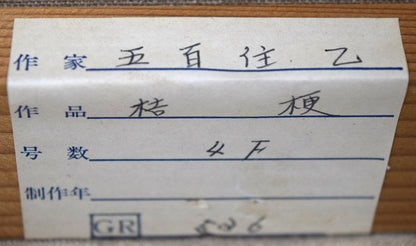 作家 五百住 乙
作品 桔 梗
号数 4F
制作年
GR 526